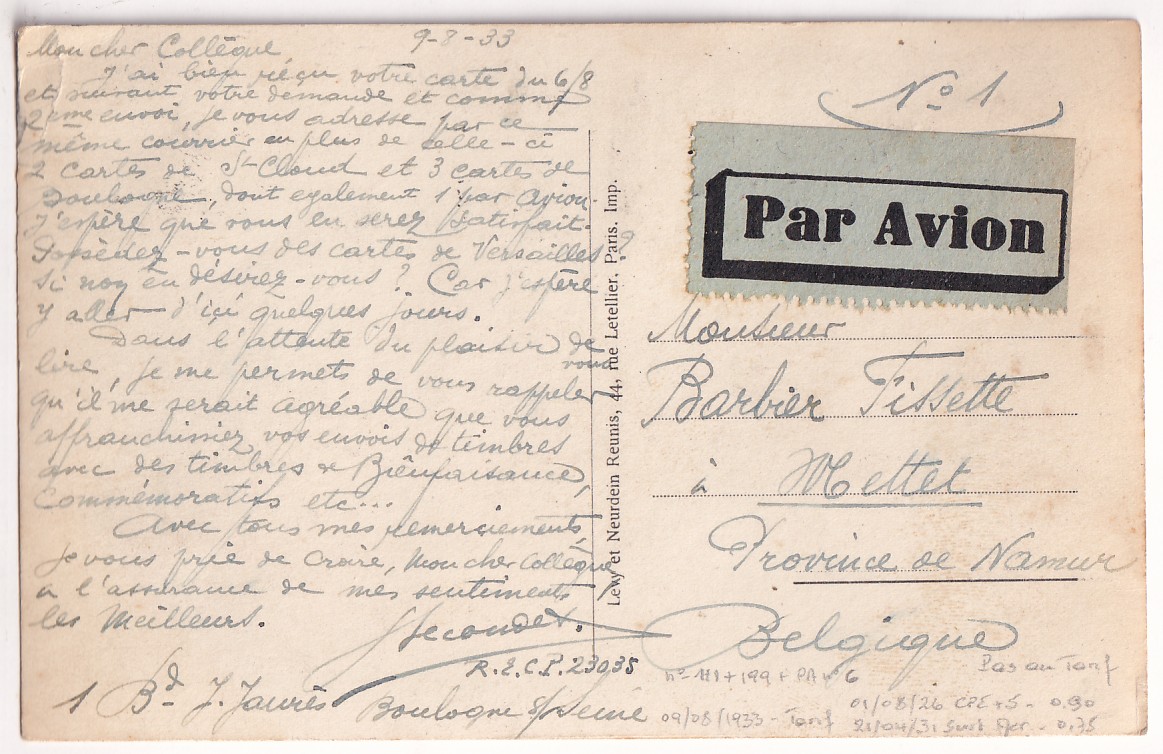 Mon cher Collègue 9-8-33
J'ai bien réçu votre carte du 6/8
et suivant votre demande et comme
2ème envoi, je vous adresse par ce
même courrier en plus de celle-ci
2 cartes de St-Cloud et 3 cartes de
Boulogne, dont egalement 1 par avion.
J'espère que vous en serez satisfait.
Possèdez-vous des cartes de Versailles?
si non en désirez-vous? Car j'espère
y aller d'içi quelques jours.
Dans l'attente du plaisir de
vous
lire, je me permets de vous rappeler
qu'il me serait agréable que vous
affranchissiez vos envois de timbres
avec des timbres de Bienfaisance,
Commémoratifs etc...
Avec tous mes remerciements,
je vous prie de croire, Mon cher Collègue,
a l'assurance de mes sentiments
les meilleurs.
R.E.C.P. 23035
1 Bd J. Jaurès Boulogne s/Seine
Levy et Neurdein Reunis, 44, rue Letellier, Paris. Imp.
No 1
Par Avion
Monsieur
Barbier Fissette
à Mettet
Province de Namur
Belgique
n° 181+199+PA n° 6 Pas au Tarif
09/08/1933 - Tarif 01/08/26 CPE+5 - 0.90
21/04/31 Surt Aer - 0.75